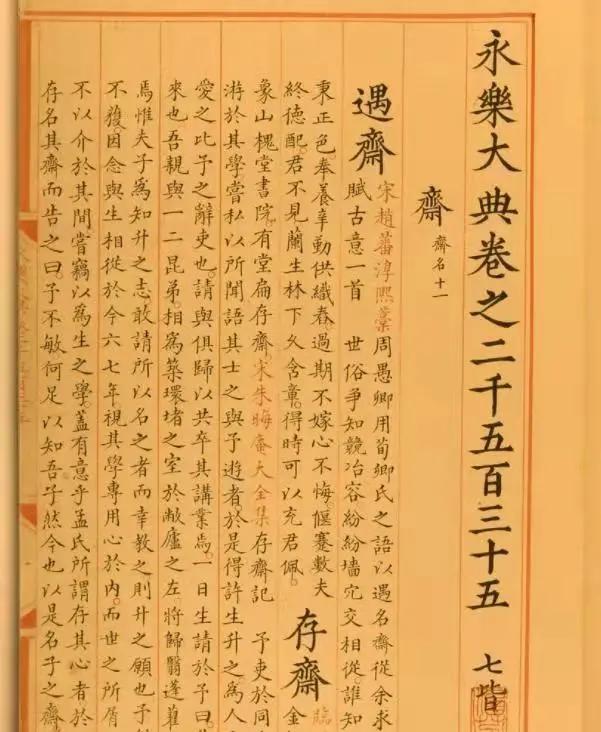 永樂大典卷之二千五百三十五 七皆
齋 齋名十一
遇齋
宋趙蕃淳熙藁周愚卿用荀卿氏之語以遇名齋從余求
賦古意一首 世俗爭知競冶容紛紛墻宂交相從誰知
秉正色奉養辛勤供織舂過期不嫁心不悔偃蹇數夫
終德配君不見蘭生林下久含章得時可以充君佩
存齋
臨
金
象山槐堂書院有堂扁存齋宋朱晦庵大全集存齋記 予吏於同
游於其學嘗私以所聞語其士之與予遊者於是得許生升之為人
愛之比予之辭吏也請與俱歸以共卒其講業焉一日生請於予曰
來也吾親與一二昆弟相爲築環堵之室於敝廬之左將歸翳蓬藋
焉惟夫子為知升之志敢請所以名之者而幸教之則升之願也予
不獲因念與生相從於今六七年視其學專用心於內而世之所屑
不以介於其間嘗竊以為生之學蓋有意乎孟氏所謂存其心者於
存名其齋而告之曰予不敏何足以知吾子然今也以是名子之齋